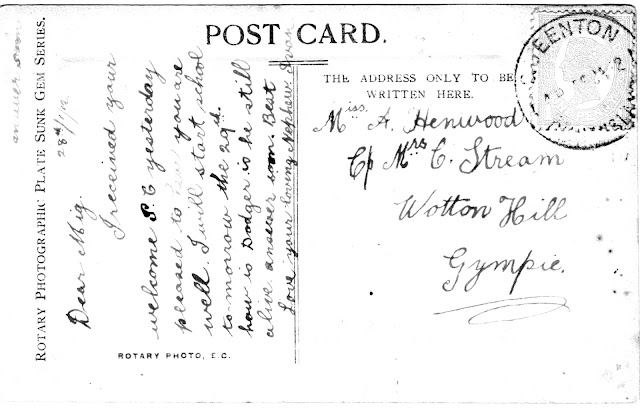 POST CARD.
ROTARY PHOTOGRAPHIC PLATE SUNK GEM SERIES.
THE ADDRESS ONLY TO BE
WRITTEN HERE.
28th/1/12
Dear Mig.
I received your
welcome P.C yesterday
pleased to hear you are
well I will start school
to-morrow the 29th.
how is Dodger is he still
alive answer soon. Best
Love your loving Nephew
answer soon
Miss A. Henwood
C/o Mrs C. Stream
Wotton Hill
Gympie.
ROTARY PHOTO, E.C.
EENTON